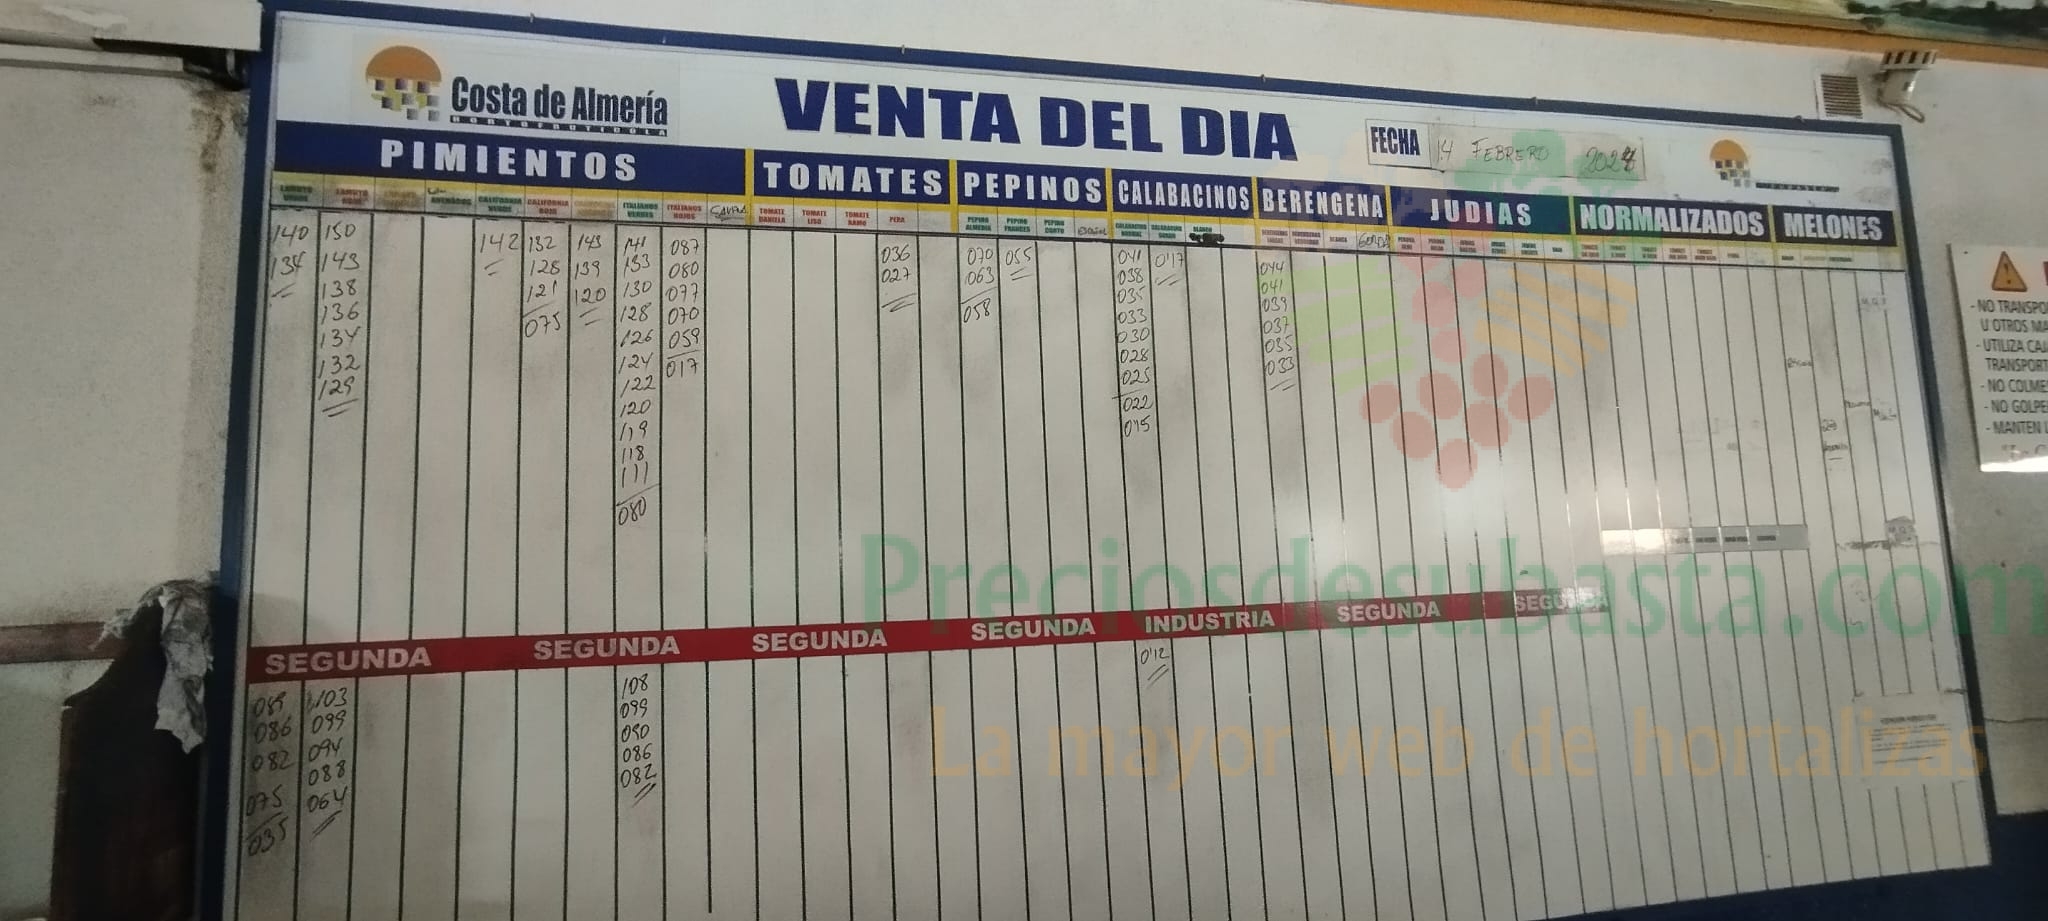 Costa de Almería
HORTOFRUTICOLA
VENTA DEL DIA
FECHA 14 FEBRERO 2024
PIMIENTOS TOMATES PEPINOS CALABACINOS BERENGENA JUDIAS NORMALIZADOS MELONES
LAMUYO VERDE
LAMUYO ROJO
CALIFORNIA VERDE
CALIFORNIA ROJO
ITALIANOS VERDES
ITALIANOS ROJOS
TOMATE DANIELA
TOMATE LISO
TOMATE RAMO
PERA
PEPINO ALMERIA
PEPINO FRANCES
PEPINO CORTO
ESPAÑOL
BLANCO
GORDA
140
134
150
143
138
136
134
132
129
142
132
128
121
075
143
139
120
141
133
130
128
126
124
122
120
119
118
111
080
087
080
077
070
059
017
036
027
070
063
058
055
041
038
035
033
030
028
025
022
0'15
0'17
044
041
039
037
035
033
SEGUNDA SEGUNDA SEGUNDA SEGUNDA INDUSTRIA SEGUNDA SEGUNDA
089
086
082
075
035
103
099
094
088
064
108
099
090
086
082
0'12
- NO TRANSPO
U OTROS MA
- UTILIZA CAJ
TRANSPORT
- NO COLME
- NO GOLPE
- MANTEN L
Preciosdesubasta.com
La mayor web de hortalizas